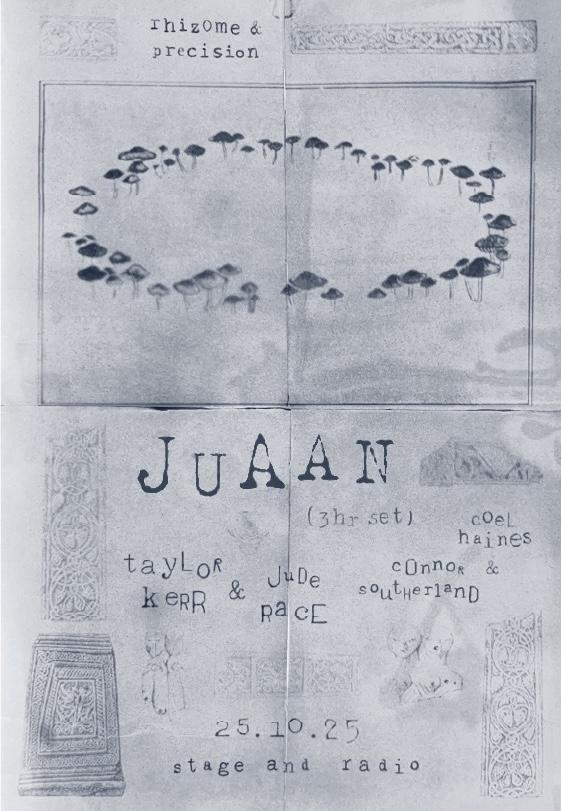 rhizome &
precision
JUAAN
(3hr set)
coel
haines
&
connor
southerland
taylor
kerr
&
Jude
Race
25.10.25
stage and radio